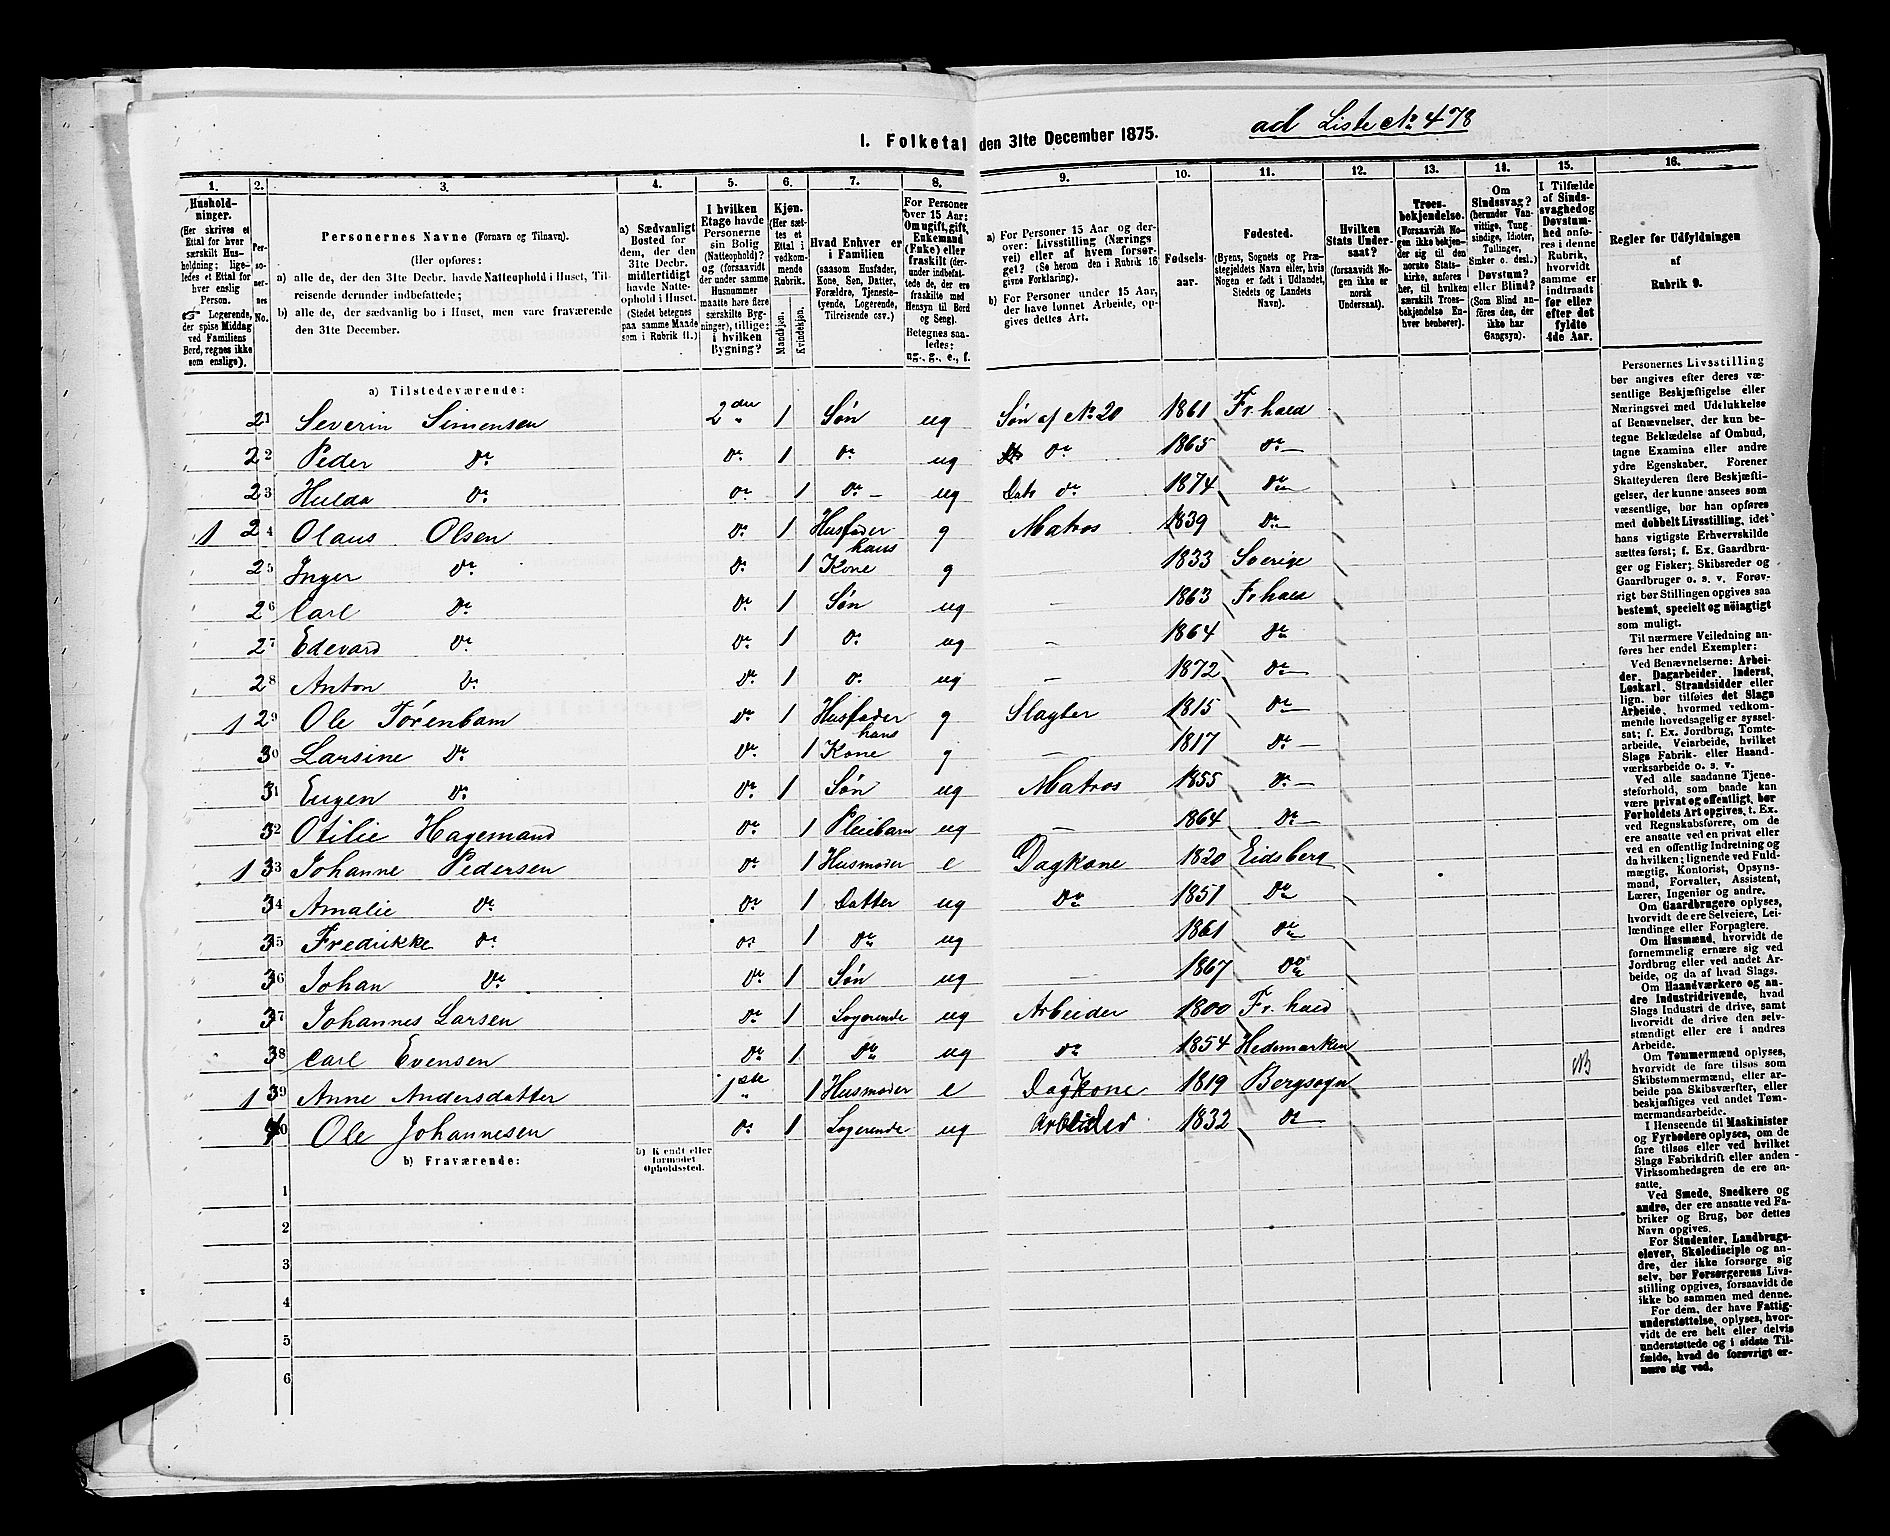 ad Liste No 478
I. Folketal den 31te December 1875.
1. 2. 3. 4. 5. 6. 7. 8. 9. 10. 11. 12. 13. 14. 15. 16.
Husholdninger. (Her skrives et Ettal for hver særskilt Husholdning; ligeledes et Ettal for hver enslig Person. ☞ Logerende, der spise Middag ved Familiens Bord, regnes ikke som enslige).
Personernes No.
Personernes Navne (Fornavn og Tilnavn).
(Her opføres:
a) alle de, der den 31te Decbr. havde Natteophold i Huset, Tilreisende derunder indbefattede;
b) alle de, der sædvanlig bo i Huset, men vare fraværende den 31te December.
a) Sædvanligt Bosted for dem, der den 31te Decbr. midlertidigt havde Natteophold i Huset. (Stedet betegnes paa samme Maade som i Rubrik 11.)
I hvilken Etage havde Personerne sin Bolig (Natteophold)? og (forsaavidt der under samme Husnummer maatte høre flere særskilte Bygninger), tillige: i hvilken Bygning?
Kjøn. (Her sættes et Ettal i vedkommende Rubrik.
Mandkjøn. Kvindekjøn.
Hvad Enhver er i Familien (saasom Husfader, Kone, Søn, Datter, Forældre, Tjenestetyende, Logerende, Tilreisende osv.)
For Personer over 15 Aar: Om ugift, gift, Enkemand (Enke) eller fraskilt (derunder indbefattede de, der ere fraskilte med Hensyn til Bord og Seng). Betegnes saaledes: ug., g., e., f.
a) For Personer 15 Aar og derover: Livsstilling (Nærings vei) eller af hvem forsørget? (Se herom den i Rubrik 16 givne Forklaring).
b) For Personer under 15 Aar, der have lønnet Arbeide, opgives dettes Art.
Fødselsaar.
Fødested. (Byens, Sognets og Præstegjeldets Navn eller, hvis Nogen er født i Udlandet, Stedets og Landets Navn).
Hvilken Stats Undersaat? (forsaavidt Nogen ikke er norsk Undersaat).
Troesbekjendelse. (Forsaavidt Nogen ikke bekjender sig til den norske Statskirke, anføres her, til hvilken særskilt Troesbekjendelse Enhver henhører).
Om Sindssvag? (herunder Vanvittige, Tungsindige, Idioter, Tullinger, Sinker o. desl.). Døvstum? eller Blind? (Som Blind anføres den, der ikke har Gangsyn).
I Tilfælde af Sindssvaghed og Døvstumhed anføres i denne Rubrik, hvorvidt samme er indtraadt før eller efter det fyldte 4de Aar.
Regler for Udfyldningen af Rubrik 9.
a) Tilstedeværende:
21 Severin Simensen 2den 1 Søn ug Søn af No 20 1861 Fr.hald
22 Peder Do Do 1 Do ug Do 1865 Do
23 Hulda Do Do 1 Do ug Datr Do 1874 Do
1 24 Olaus Olsen Do 1 Husfader g Matros 1839 Do
25 Inger Do Do 1 hans Kone g — 1833 Sverige
26 Carl Do Do 1 Søn ug — 1863 Fr.hald
27 Edevard Do Do 1 Do ug — 1864 Do
28 Anton Do Do 1 Do ug — 1872 Do
1 29 Ole Törenbam Do 1 Husfader g Slagter 1815 Do
30 Larsine Do Do 1 hans Kone g — 1817 Do
31 Eugen Do Do 1 Søn ug Matros 1855 Do
32 Otilie Hagemand Do 1 Pleiebarn ug — 1864 Do
1 33 Johanne Pedersen Do 1 Husmoder e Dagkone 1820 Eidsberg
34 Amalie Do Do 1 Datter ug Do 1851 Do
35 Fredrikke Do Do 1 Do ug 1861 Do
36 Johan Do Do 1 Søn ug — 1867 Do
37 Johannes Larsen Do 1 Logerende ug Arbeider 1800 Fr.hald
38 Carl Evensen Do 1 Do ug Do 1854 Hedemarken
1 39 Anne Andersdatter 1ste 1 Husmoder e Dagkone 1819 Bergsogn NB
40 Ole Johannesen Do 1 Logerende ug Arbeider 1832 Do
b) Fraværende:
b) Kjendt eller formodet Opholdssted.
1
2
3
4
5
6
Personernes Livsstilling bør angives efter deres væsentlige Beskjæftigelse eller Næringsvei med Udelukkelse af Benævnelser, der kun betegne Beklædelse af Ombud, tagne Examina eller andre ydre Egenskaber. Forener Skatteyderen flere Beskjæftigelser, der kunne ansees som væsentlige, bør han opføres med dobbelt Livsstilling, idet hans vigtigste Erhvervskilde sættes først; f. Ex. Gaardbruger og Fisker; Skibsreder og Gaardbruger o. s. v. Forøvrigt bør Stillingen opgives saa bestemt, specielt og nöiagtigt som muligt.
Til nærmere Veiledning anføres her endel Exempler:
Ved Benævnelserne: Arbeider, Dagarbeider, Inderst, Løskarl, Strandsidder eller lign. bør tilføies det Slags Arbeide, hvormed vedkommende hovedsagelig er sysselsat; f. Ex. Jordbrug, Tomtearbeide, Veiarbeide, hvilket Slags Fabrik- eller Haandværksarbeide o. s. v.
Ved alle saadanne Tjenesteforhold, som baade kan være privat og offentligt, bør Forholdets Art opgives, t. Ex. ved Regnskabsførere, om de ere ansatte ved en privat eller ved en offentlig Indretning og da hvilken; lignende ved Fuldmægtig, Kontorist, Opsynsmand, Forvalter, Assistent, Lærer, Ingeniør og andre.
Om Gaardbrugere oplyses, hvorvidt de ere Selveiere, Leilændinge eller Forpagtere.
Om Husmænd, hvorvidt de fornemmelig ernære sig ved Jordbrug eller ved andet Arbeide, og da af hvad Slags.
Om Haandværkere og andre Industridrivende, hvad Slags Industri de drive, samt hvorvidt de drive den selvstændigt eller ere i andres Arbeide.
Om Tømmermænd oplyses, hvorvidt de fare tilsøs som Skibstømmermænd, eller arbeide paa Skibsværfter, eller beskjæftiges ved andet Tømmermandsarbeide.
I Henseende til Maskinister og Fyrbødere oplyses, om de fare tilsøs eller ved hvilket Slags Fabrikdrift eller anden Virksomhedsgren de ere ansatte.
Ved Smede, Snedkere og andre, der ere ansatte ved Fabriker og Brug, bør dettes Navn opgives.
For Studenter, Landbrugselever, Skoledisciple og andre, der ikke forsørge sig selv, bør Forsørgerens Livsstilling opgives, forsaavidt de ikke bo sammen med denne.
For dem, der have Fattigunderstøttelse, oplyses, hvorvidt de ere helt eller delvis understøttede og i sidste Tilfælde, hvad de forøvrigt ernære sig ved.